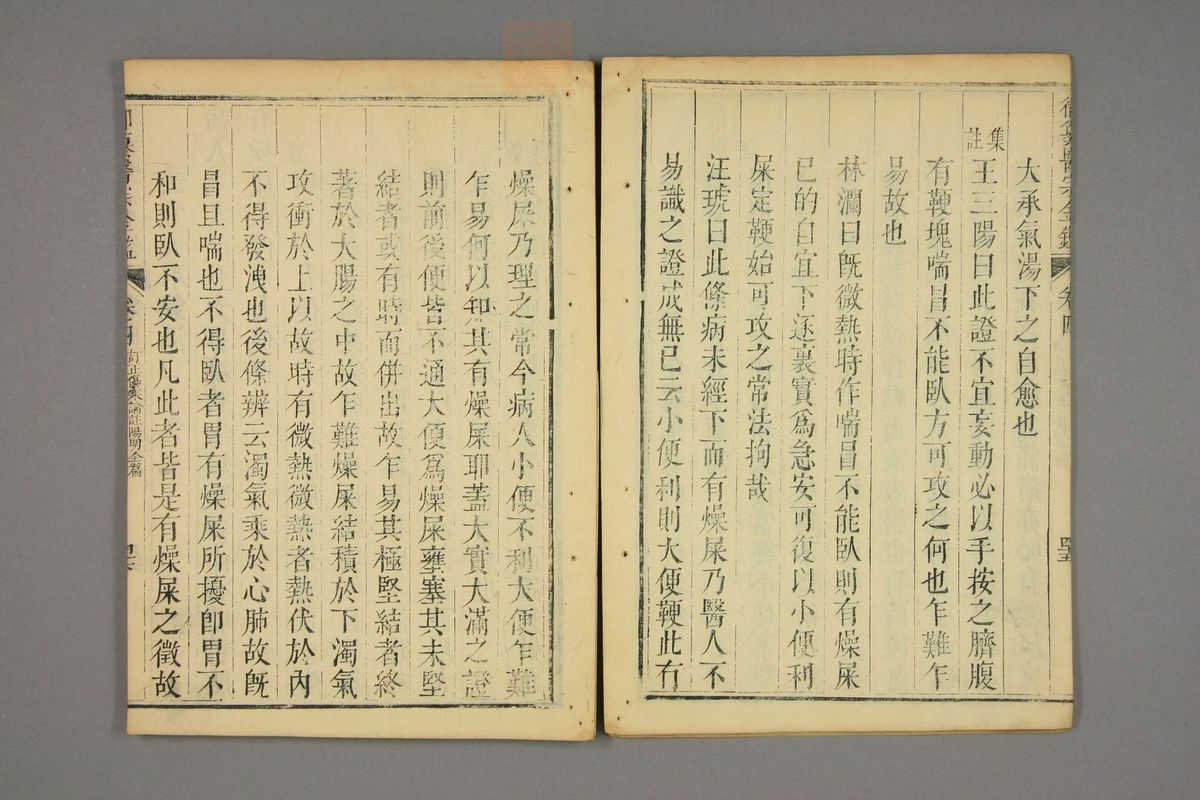 大承氣湯下之自愈也
集註
王三陽曰此證不宜妄動必以手按之臍腹
有鞕塊喘冒不能臥方可攻之何也乍難乍
易故也
林瀾曰既微熱時作喘冒不能臥則有燥屎
已的自宜下逐裏實為急安可復以小便利
屎定鞕始可攻之常法拘哉
汪琥曰此條病未經下而有燥屎乃醫人不
易識之證成無已云小便利則大便鞕此有
燥屎乃理之常今病人小便不利大便乍難
乍易何以知其有燥屎耶蓋大實大滿之證
則前後便皆不通大便為燥屎壅塞其未堅
結者或有時而併出故乍易其極堅結者終
著於大腸之中故乍難燥屎結積於下濁氣
攻衝於上以故時有微熱微熱者熱伏於內
不得發洩也後條辨云濁氣乘於心肺故既
冒且喘也不得臥者胃有燥屎所擾卽胃不
和則臥不安也凡此者皆是有燥屎之徵故
卷四